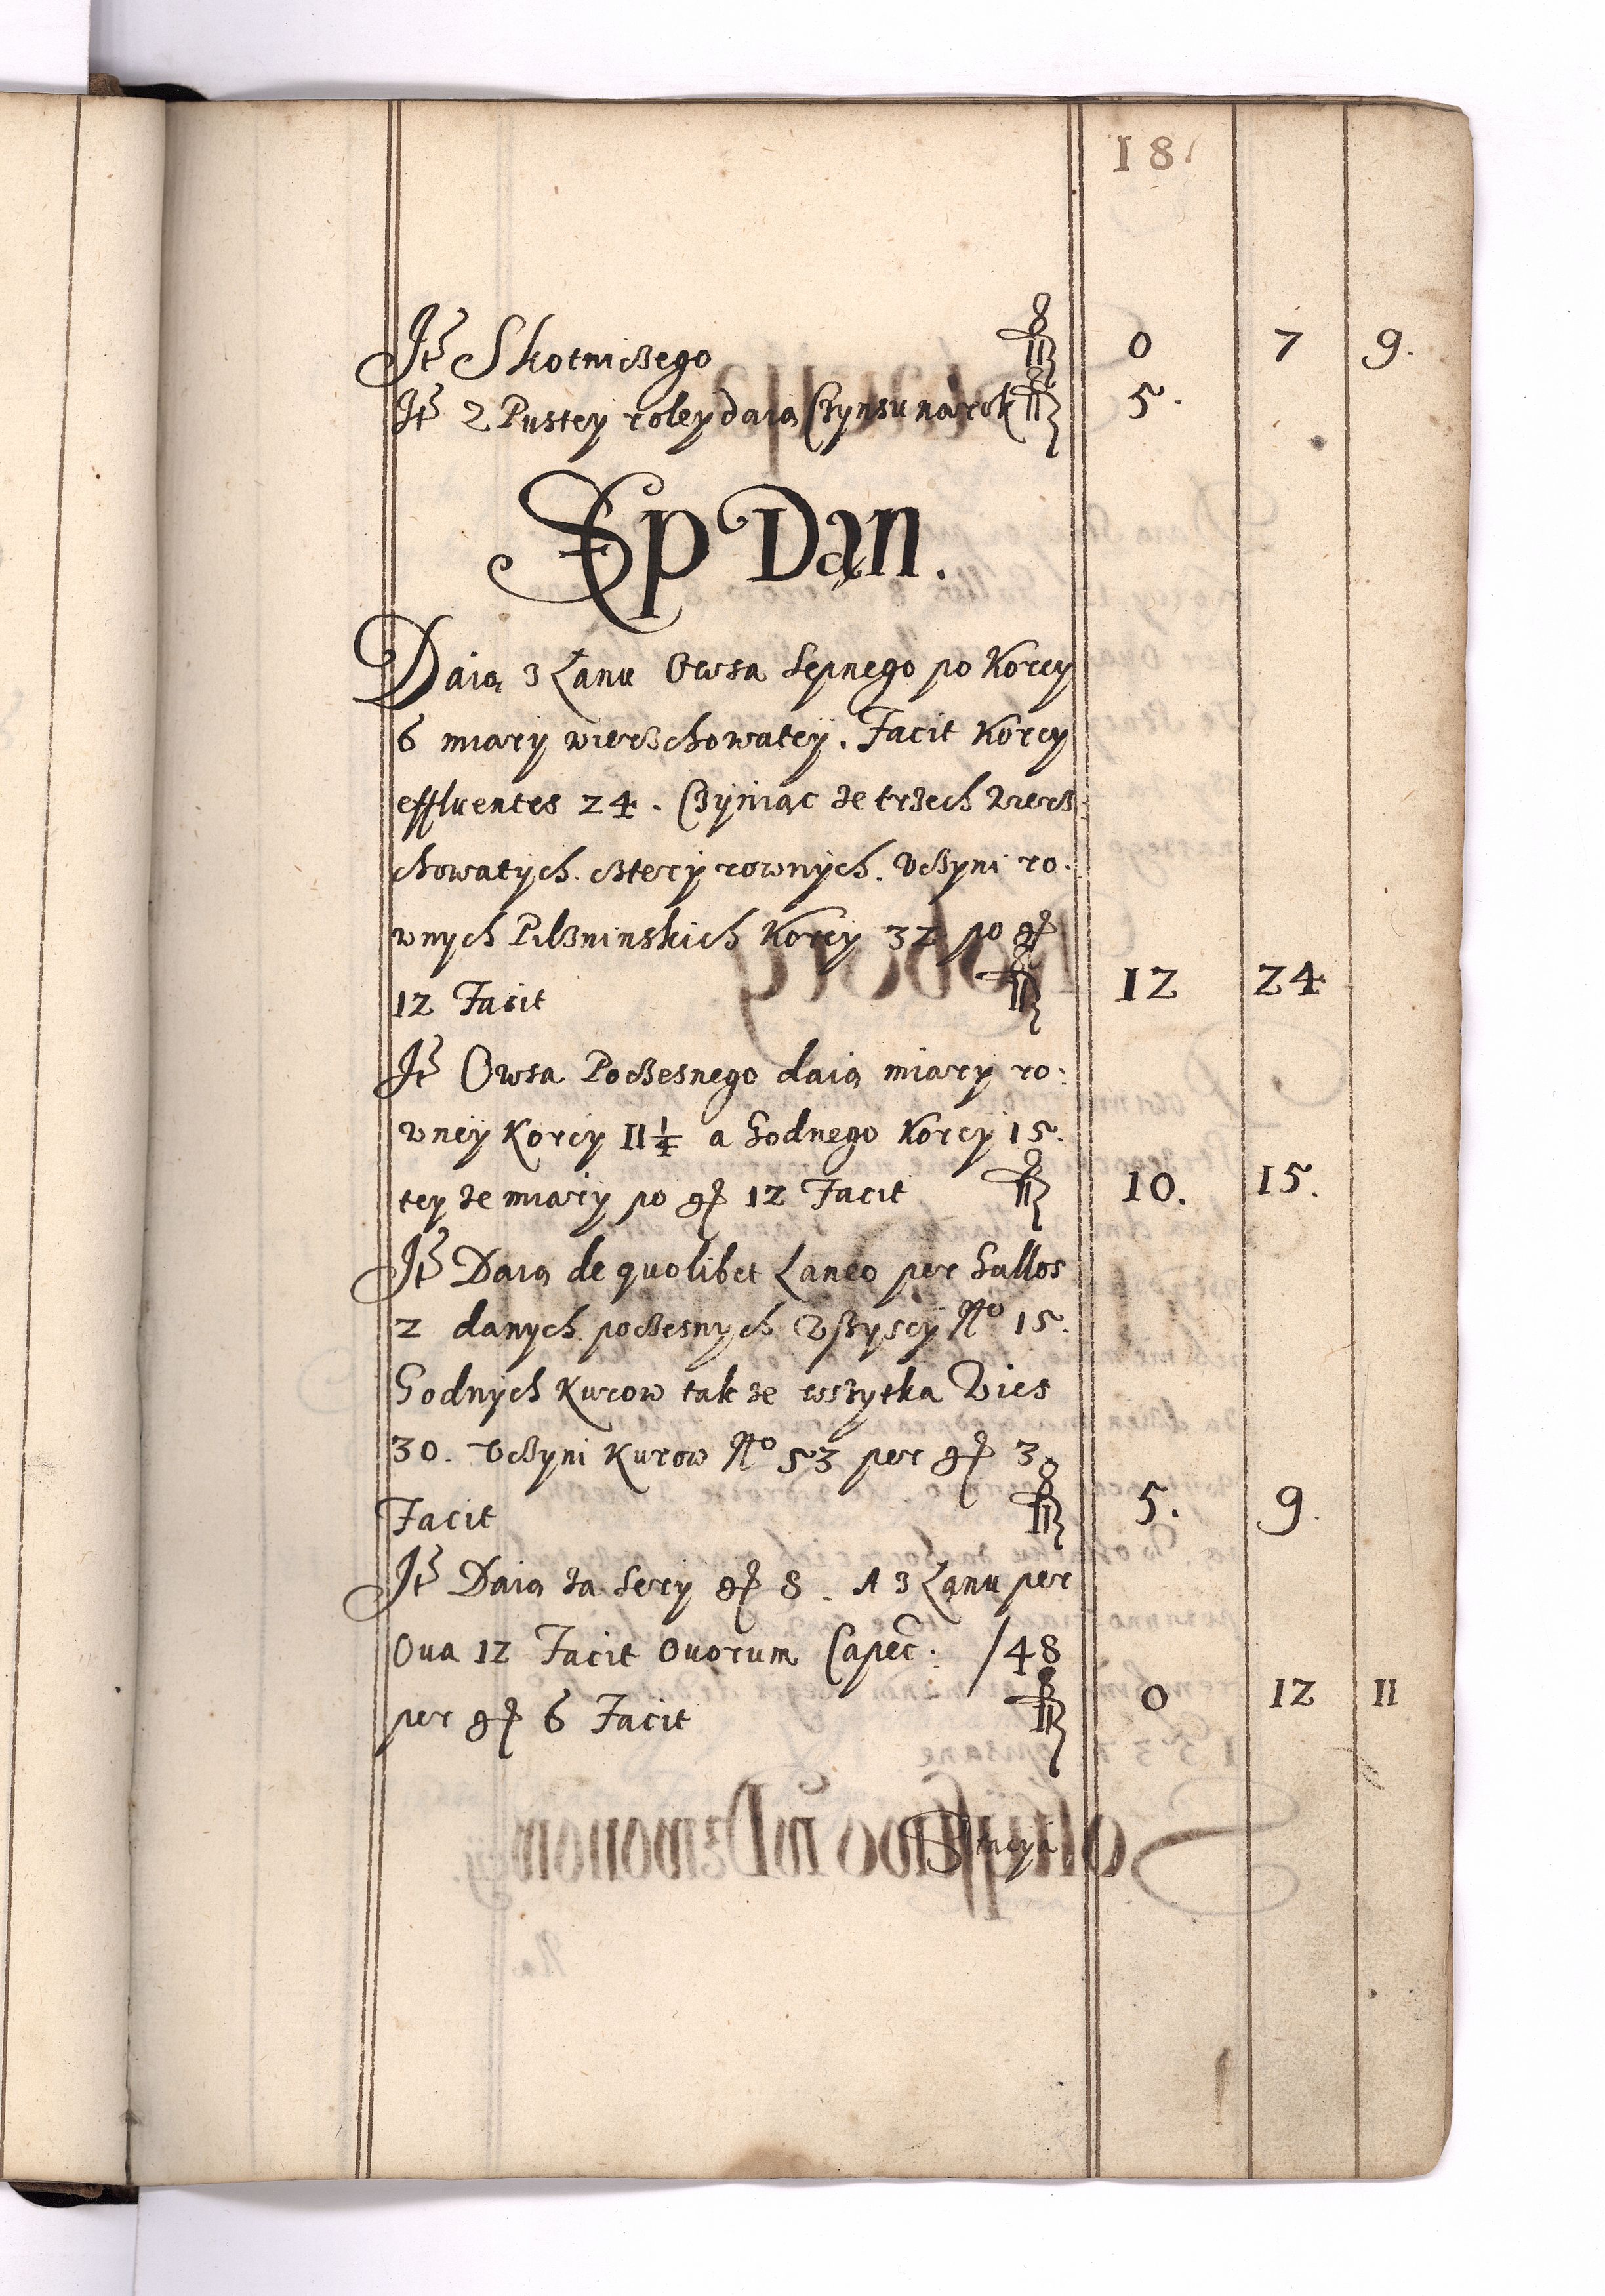 18
Itē Skotniczego fl 0 7 9.
Itē z Pustey roley daią Czynsu na rok fl 5.
Sęp Dan.
Daią z Łanu Owsa Sepnego po Korcy
6 miary wierzchowatey. Facit Korcy
effluentes 24. Czyniąc ze trzech wierz
chowatych cztery rownych. Vczyni ro:
wnych Pilzninskich Korcy 32 po gr
12 Facit fl 12 24
Itē Owsa Poczesnego daią miary ro:
wney Korcy 11¼ a Godnego Korcy 15.
teyze miary po gr 12 Facit fl 10. 15.
Itē Daią de quolibet Laneo per Gallos
2 danych poczesnych Wszyscy No 15.
Godnych Kurow takze wszytka Wies
30. Vczyni Kurow No 53 per gr 3
Facit fl 5. 9.
Itē Daią za Sery gr 8. A z Łanu per
Oua 12 Facit Ouorum Capec: /48
per gr 6 Facit fl 0 12 11
Stacya